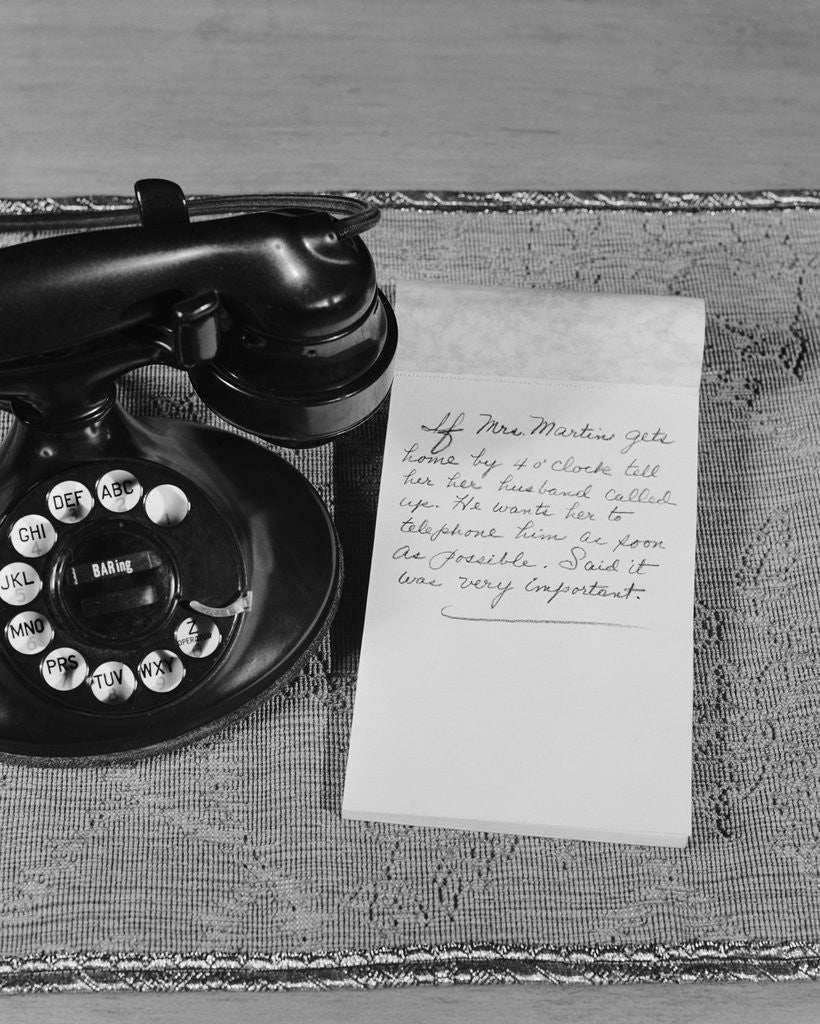 ABC
2
DEF
3
GHI
4
JKL
5
MNO
6
PRS
7
TUV
8
WXY
9
Z
OPERATOR
BARing
If Mrs. Martin gets
home by 4 o'clock tell
her her husband called
up. He wants her to
telephone him as soon
as possible. Said it
was very important.